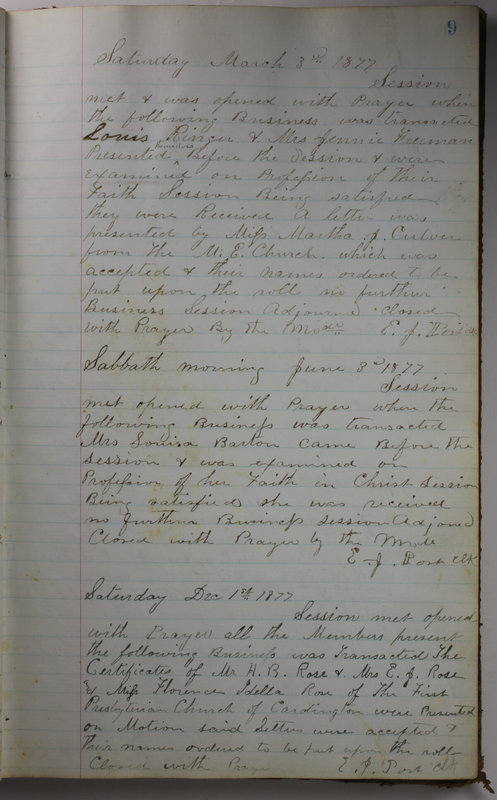 9
Saturday March 3rd 1877
Session
met & was opened with Prayer when
the following Business was transacted
Louis Ringer & Mrs Jennie Freeman
Presented themselves Before the Session & were
examined on Profession of their
Faith Session Being satisfied
they were Received A letter was
presented by Miss Martha J. Culver
from the M. E. Church which was
accepted & their names ordered to be
put upon the roll no further
Business Session Adjourned closed
with Prayer By the Modr E. J. Post
Sabbath morning June 3rd 1877
Session
met opened with Prayer when the
following Business was transacted
Mrs Louisa Barton came Before the
Session & was examined on
Profession of her Faith in Christ Session
Being satisfied she was received
no further Business session Adjoned
Closed with Prayer by the Mode
E. J. Post Clk
Saturday Dec 1st 1877
Session met opened
with Prayer all the Members present
the following Business was Transacted The
Certificates of Mr H. B. Rose & Mrs E. J. Rose
& Miss Florence Idella Rose of The First
Presbyterian Church of Cardington were Presented
on Motion said Letters were accepted &
their names ordered to be put upon the roll
Closed with Prayer E. J. Post Clk